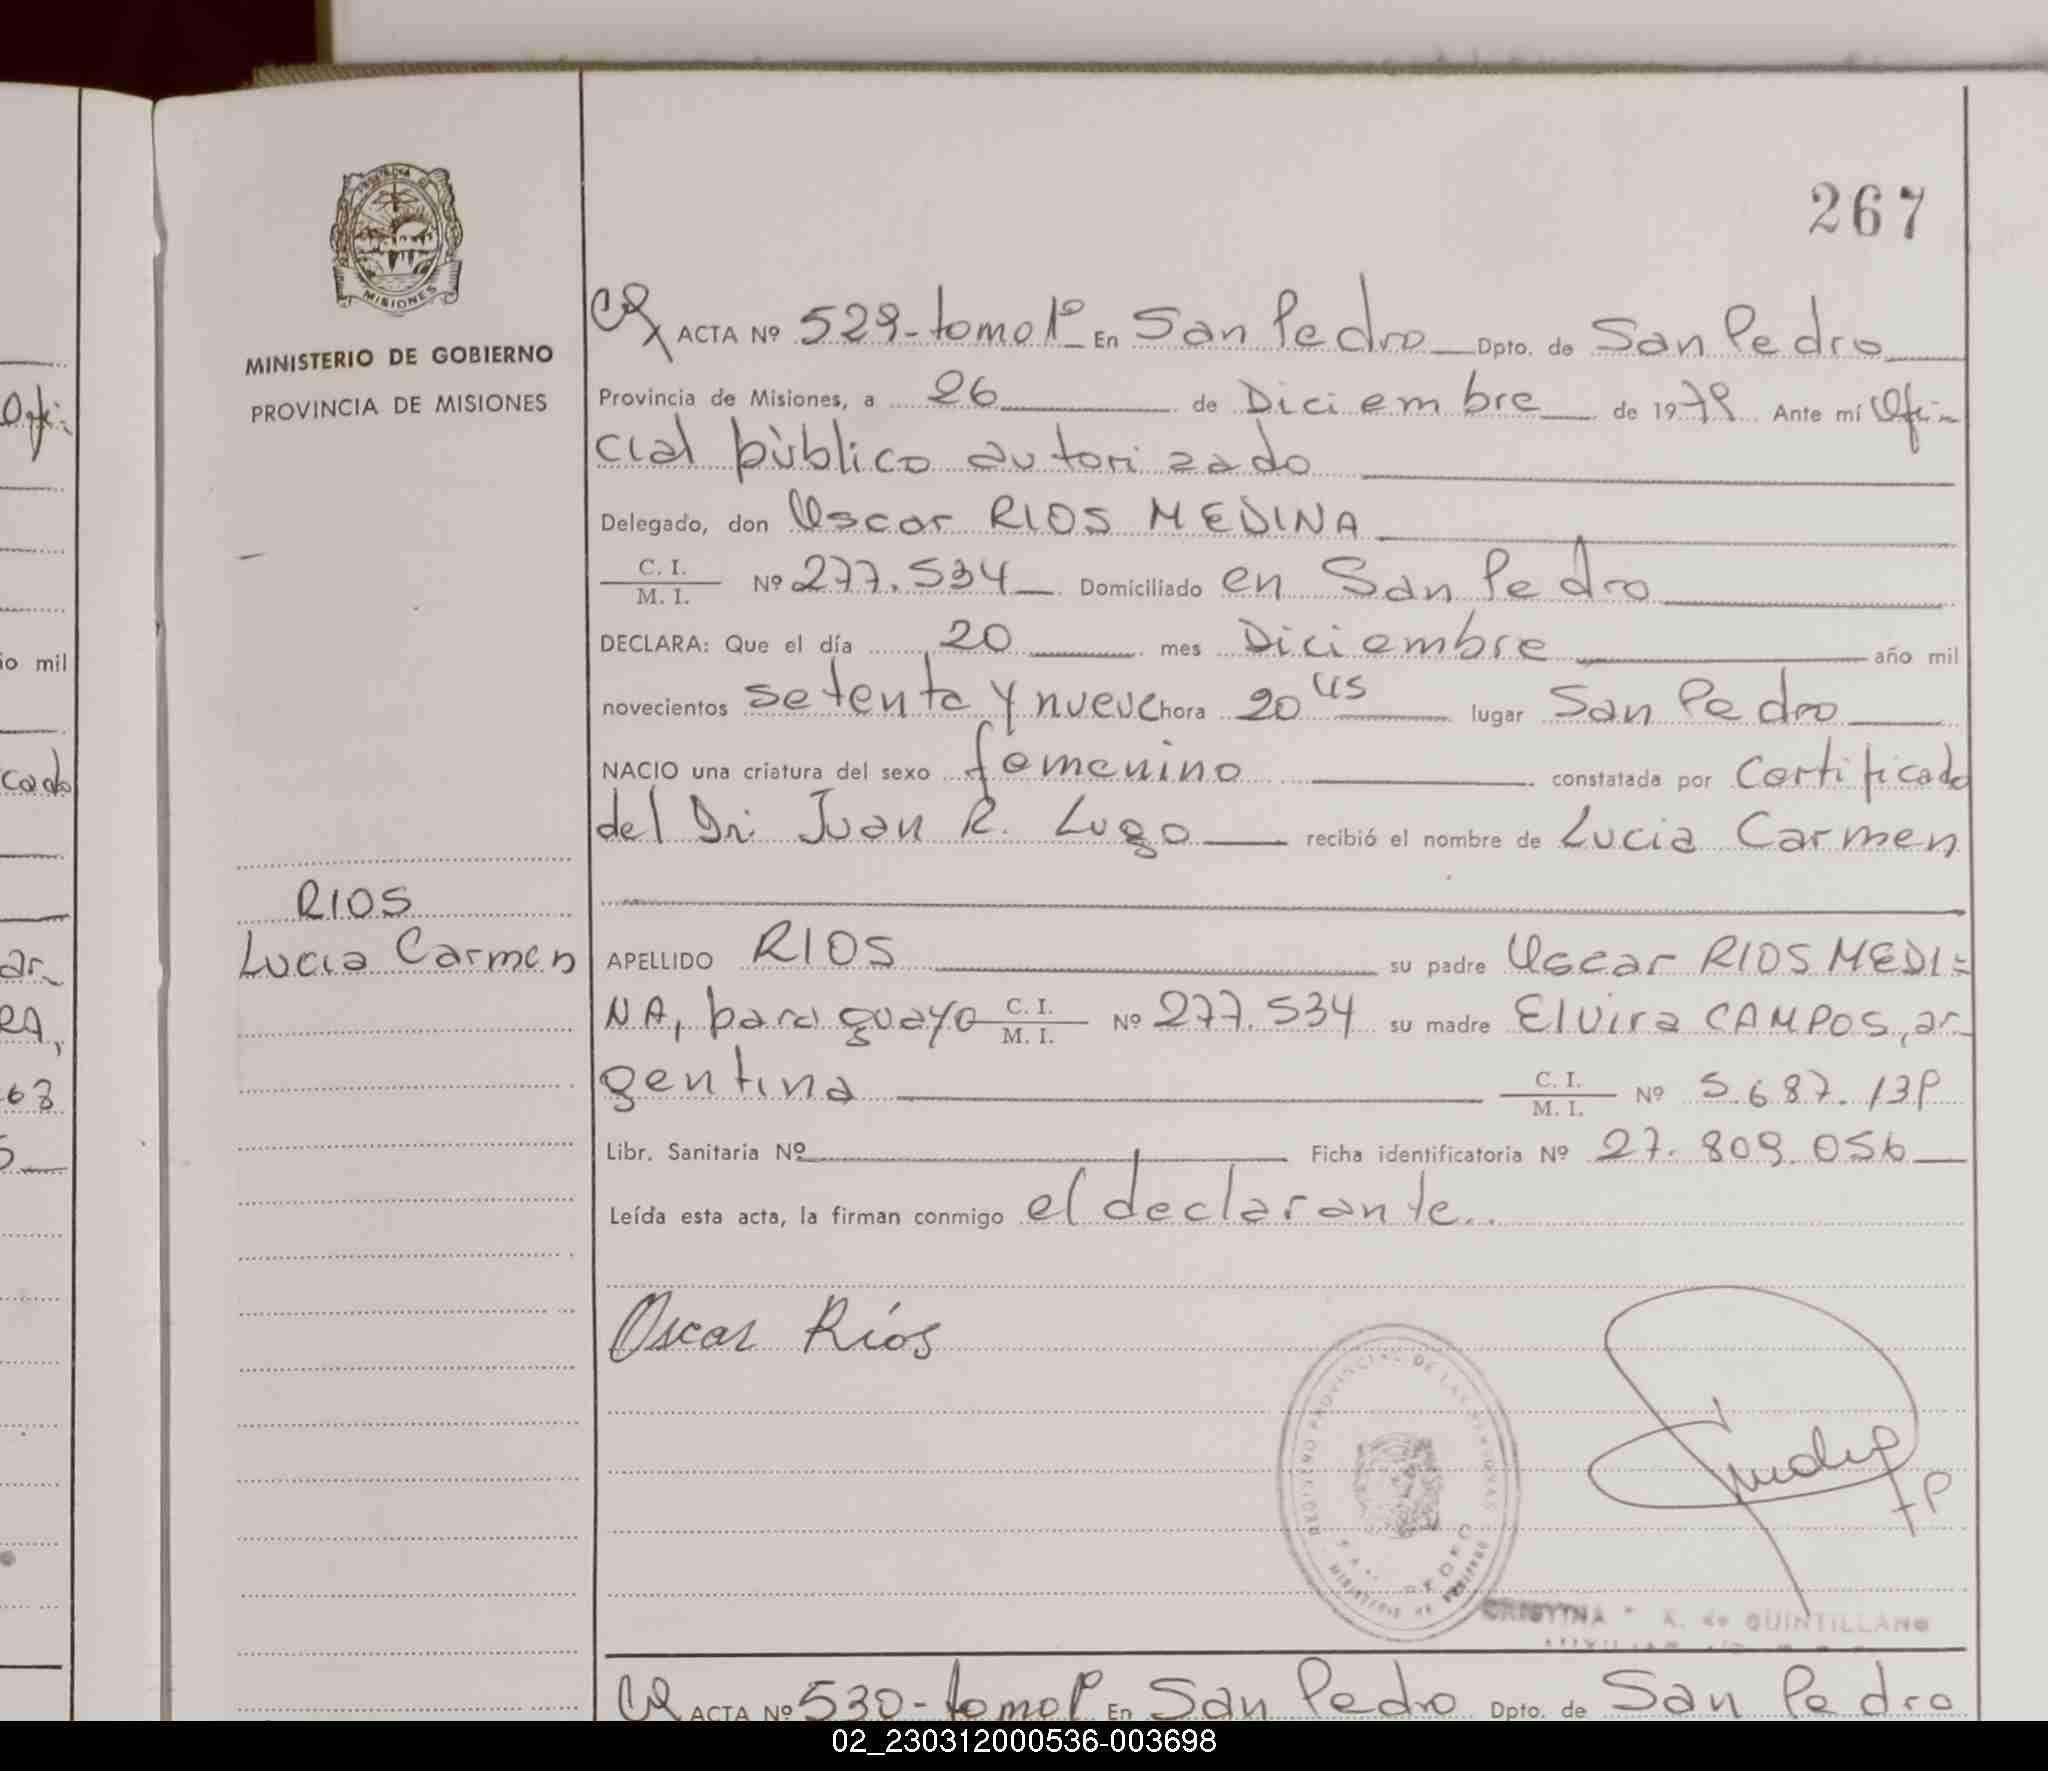 267
MINISTERIO DE GOBIERNO
PROVINCIA DE MISIONES
MISIONES
ACTA Nº 529-tomo 1º En San Pedro Dpto. de San Pedro
Provincia de Misiones, a 26 de Diciembre de 1979 Ante mí Ofi-
cial público autorizado
Delegado, don Oscar RIOS MEDINA
C. I.
M. I. Nº 277.534 Domiciliado en San Pedro
DECLARA: Que el día 20 mes Diciembre año mil
novecientos setenta y nueve hora 20 45 lugar San Pedro
NACIO una criatura del sexo femenino constatada por Certificado
del Dr. Juan R. Lugo recibió el nombre de Lucia Carmen
RIOS
Lucia Carmen
APELLIDO RIOS su padre Oscar RIOS MEDI=
NA, paraguayo C. I. M. I. Nº 277.534 su madre Elvira CAMPOS, ar-
gentina C. I. M. I. Nº 5.687.139
Libr. Sanitaria Nº Ficha identificatoria Nº 27.809.056
Leída esta acta, la firman conmigo el declarante..
Oscar Ríos
REGISTRO PROVINCIAL DE LAS PERSONAS
MINISTERIO DE GOBIERNO
SAN PEDRO
CRISTINA K. de QUINTILLANO
ACTA Nº 530-tomo 1º En San Pedro Dpto. de San Pedro
Ofi-
io mil
cado
ar-
RA,
63
02_230312000536-003698